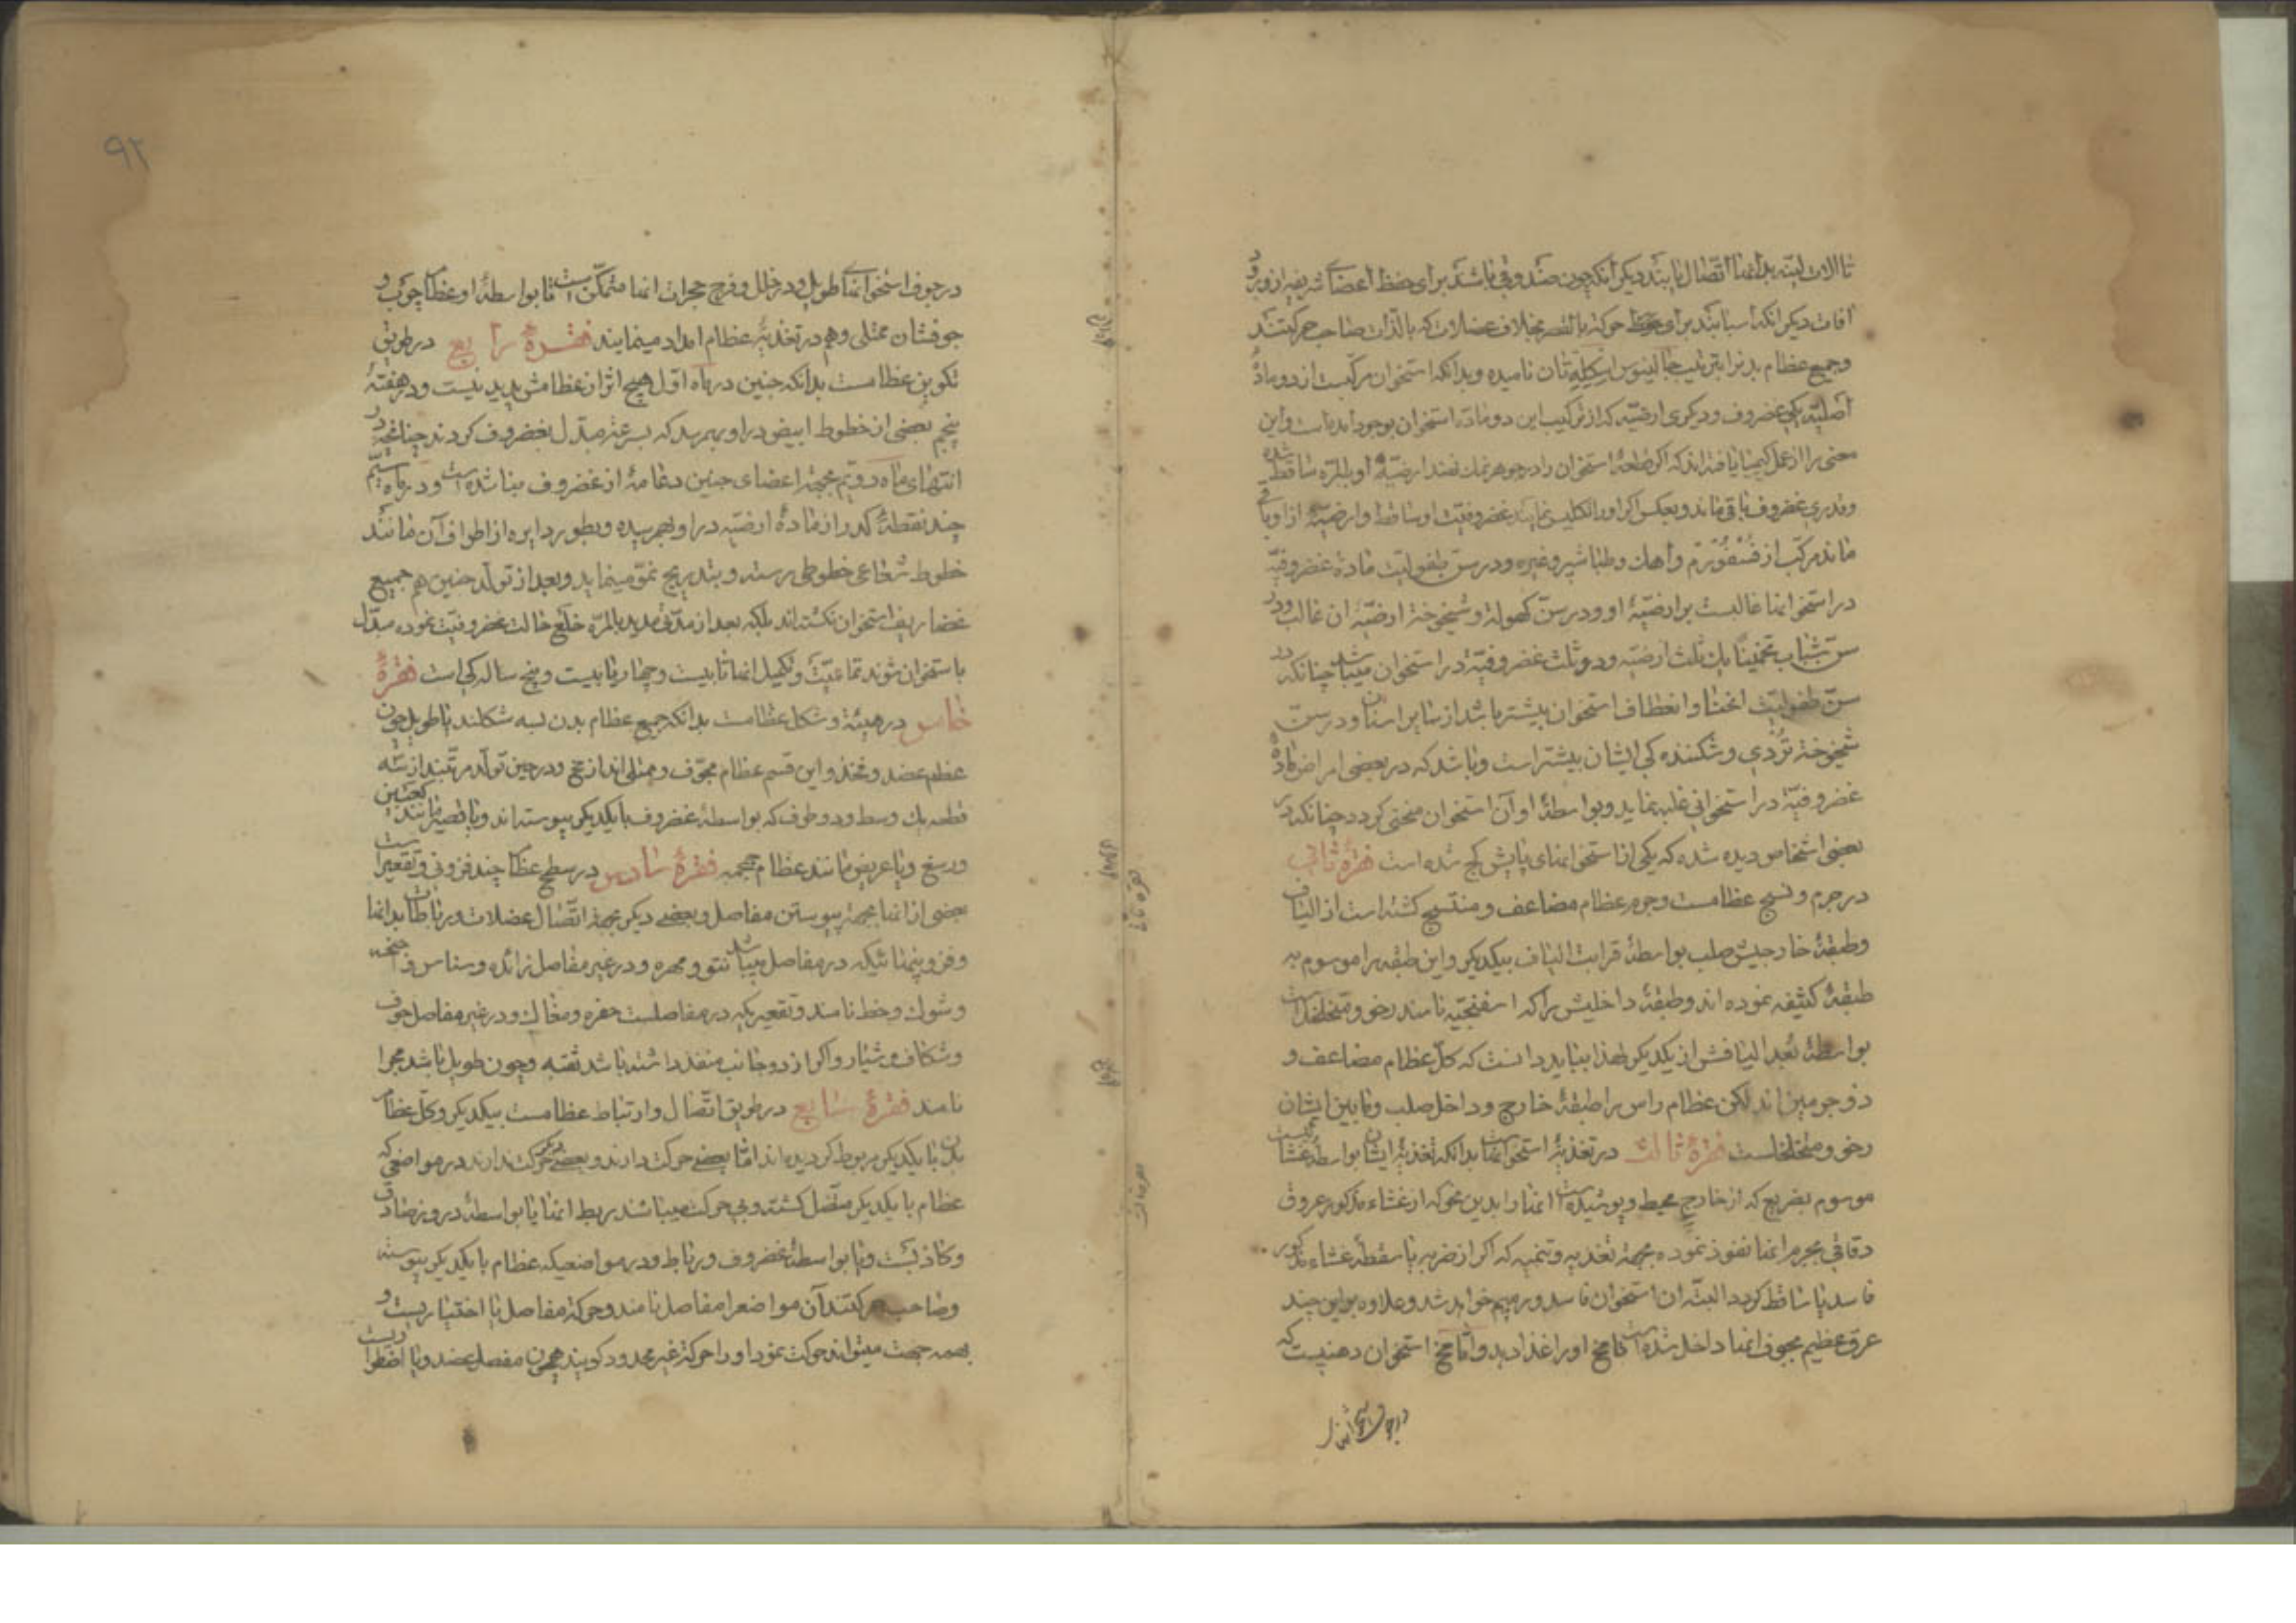 تا آلات لینه بدانها اتصال یابند دیگر آنکه چون صندوقی باشند برای حفظ اعضای شریفه از ورود
آفات دیگر آنکه اسبابند برای حرکة بالقسر بخلاف عضلات که بالذات صاحب حرکتند
و جمیع عظام بدنرا بترتیب جالینوس اسکلتان نامیده و بدانکه استخوان مرکبست از دو مادۀ
اصلیه یکی غضروف و دیگری ارضیه که از ترکیب این دو ماده استخوان بوجود آمده است و این
معنی را از عمل کیمیا یافته‌اند که اگر قطعۀ استخوان را در جوهر نمک نهند ارضیۀ او بالمره ساقط شده
و قدری غضروف باقی ماند و بعکس اگر او را تکلیس نمایند غضروفیت او ساقط و ارضیۀ از او باقی
ماند مرکب از فسفورم و آهک و طباشیر و غیره و در سن طفولیت مادۀ غضروفیه
در استخوانها غالبست بر ارضیۀ او و در سن کهولة و شیخوخة ارضیۀ آن غالب و در
سن شباب تخمینا یک ثلث ارضیه و دو ثلث غضروفیة در استخوان میباشد چنانکه در
سن طفولیت انحنا و انعطاف استخوان بیشتر باشد از سایر اسنان و در سن
شیخوخة تردی و شکنندگی ایشان بیشتر است و باشد که در بعضی امراض مادۀ
غضروفیة در استخوانی غلبه نماید و بواسطۀ او آن استخوان منحنی گردد چنانکه در
بعضی اشخاص دیده شده که یکی از استخوانهای پایش کج شده است فقرۀ ثانی
در جرم و نسج عظامست و جرم عظام مضاعف و منتسج گشته است از الیاف
و طبقۀ خارجیش صلب بواسطۀ قرابت الیاف بیکدیگر و این طبقه را موسوم به
طبقۀ کثیفه نموده‌اند و طبقۀ داخلیش را که اسفنجیه نامند رخو و متخلخل است
بواسطۀ بعد الیافش از یکدیگر لهذا بباید دانست که کل عظام مضاعف و
ذو جرمین‌اند لکن عظام راس را طبقۀ خارج و داخل صلب و مابین ایشان
رخو و متخلخلست فقرۀ ثالث در تغذیۀ استخوانهاست بدانکه تغذیۀ ایشان بواسطۀ غشائیست
موسوم بضریع که از خارج محیط و پوشیده است آنها را بدین نحو که از غشاء مذکور عروق
دقاقی بجرم آنها نفوذ نموده بجهة تغذیه و تنمیه که اگر از ضربه یا سقطه غشاء مذکور
فاسد یا ساقط گردد البته آن استخوان فاسد و رمیم خواهد شد و علاوه براین چند
عرق عظیم بجوف آنها داخل شده است تا مخ او را غذا دهد و اما مخ استخوان دهنیست که
در جوف استخوانهای
در جوف استخوانهای طویل و در خلل و فرج حجرات آنها متمکن است تا بواسطۀ او عظام چرب و
جوفشان ممتلی و هم در تغذیۀ عظام امداد مینمایند فقرۀ رابع در طریق
تکوین عظامست بدانکه جنین در ماه اول هیچ اثر از عظامش پدید نیست و در هفتۀ
پنجم بعضی از خطوط ابیض در او بهم رسد که بسرعة مبدل بغضروف گردند چنانچه در
انتهای ماه دویم بجهة اعضای جنین دعامۀ از غضروف مبنا شده است و در ماه سیم
چند نقطۀ کدر از مادۀ ارضیه در او بهم رسیده و بطور دایره از اطراف آن مانند
خطوط شعاعی خطوطی رسته و بتدریج نمو مینماید و بعد از تولد جنین هم جمیع
غضاریف استخوان نگشته‌اند بلکه بعد از مدتی مدید بالمره خلع حالت غضروفیت نموده مبدل
باستخوان شوند تمامیت و تکمیل آنها تا بیست و چهار یا بیست و پنج سالگی است فقرۀ
خامس در هیئة و شکل عظامست بدانکه جمیع عظام بدن بسه شکلند یا طویل چون
عظم عضد و فخذ و این قسم عظام مجوف و ممتلی‌اند از مخ و در حین تولد مرکبند از سه
قطعه یک وسط و دو طرف که بواسطۀ غضروف بایکدیگر پیوسته‌اند و یا قصیر مانند کعبین
و رسغ و یا عریض مانند عظام جمجمه فقرۀ سادس در سطح عظام چند فزونی و تقعیر است
بعضی از آنها بجهة پیوستن مفاصل و بعضی دیگر بجهة اتصال عضلات و رباطات بدانها
و فزونیهائیکه در مفاصل میباشد نتو و مهره و در غیر مفاصل زائده و سناسن و اجنحه
و شوک و خط نامند و تقعیریکه در مفاصلست حفره و مغاک و در غیر مفاصل جوف
و شکاف و شیار و اگر از دو جانب منفذ داشته باشد ثقبه و چون طویل باشد مجرا
نامند فقرۀ سابع در طریق اتصال و ارتباط عظامست بیکدیگر و کل عظام
بدن بایکدیگر مربوط گردیده‌اند اما بعضی حرکت دارند و بعضی دیگر حرکت ندارند در مواضعی که
عظام بایکدیگر متصل گشته و بی حرکت میباشند ربط آنها یا بواسطۀ دروز صادق
و کاذبست و یا بواسطۀ غضروف و رباط و در مواضعیکه عظام بایکدیگر پیوسته
و صاحب حرکتند آن مواضع را مفاصل نامند و حرکة مفاصل یا اختیاریست و
بهمه جهت میتواند حرکت نمود او را حرکة غیر محدود گویند همچون مفصل عضد و یا اضطراریست
٩٢
فقره ثانی